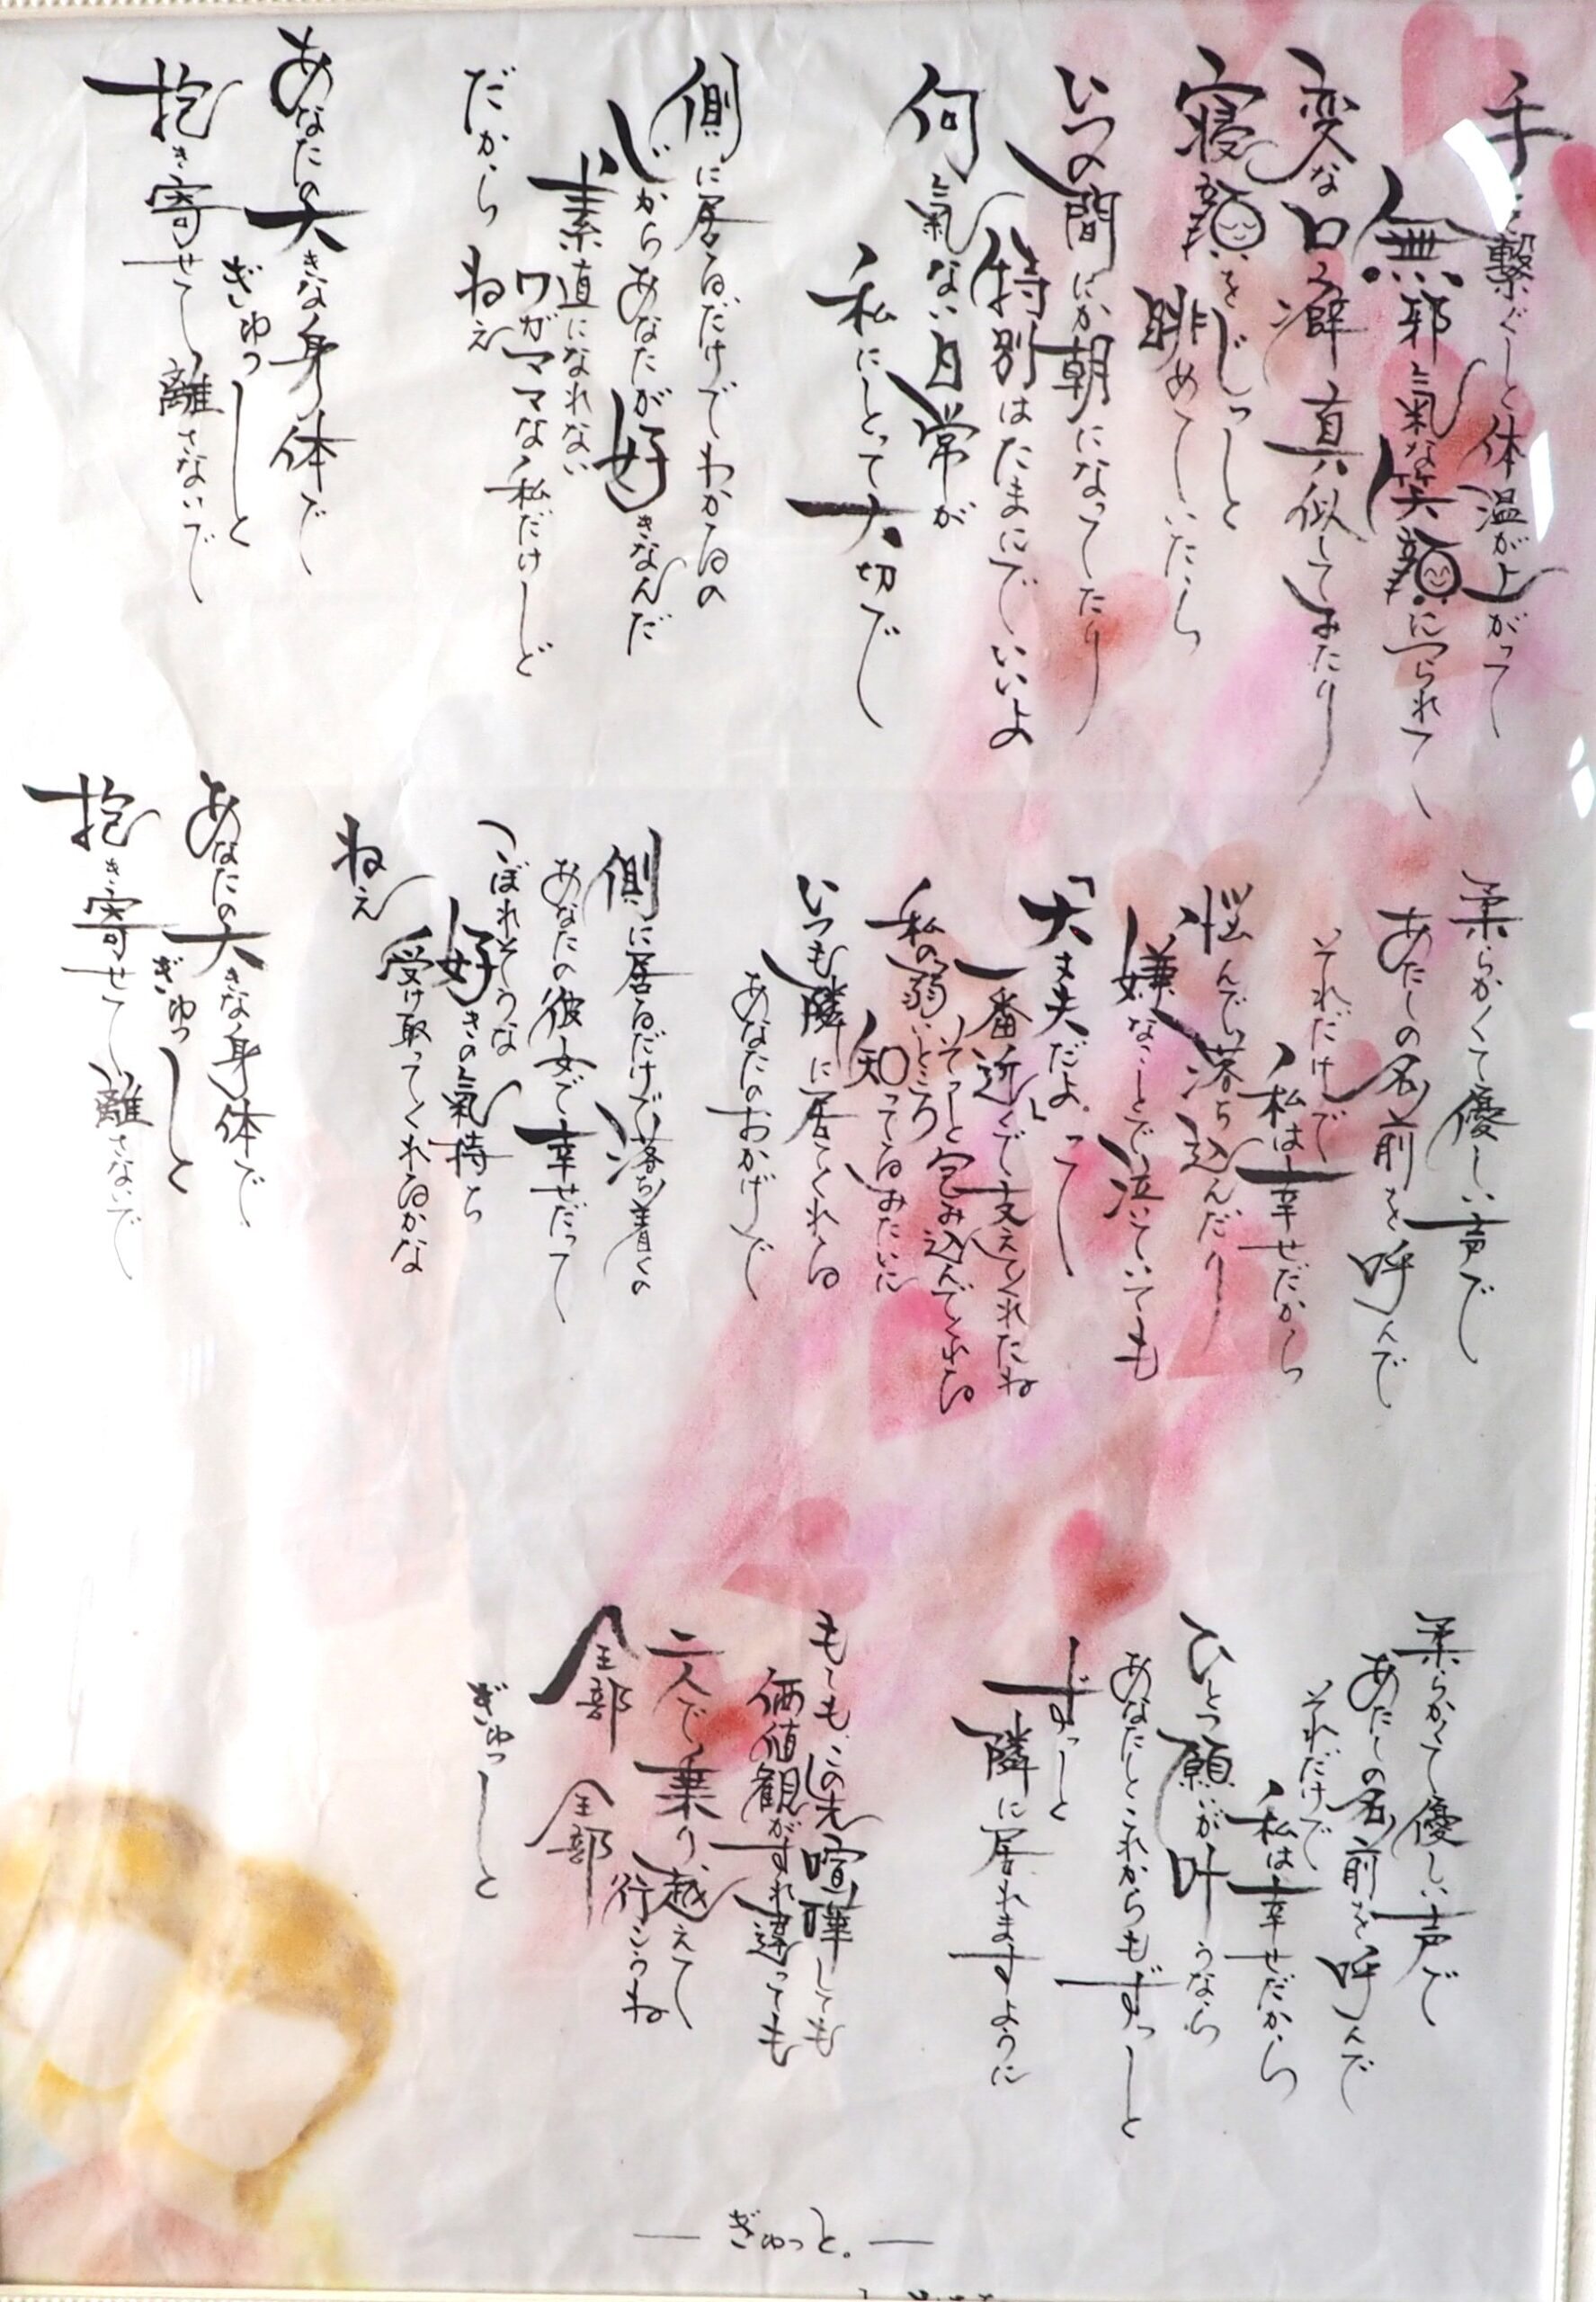 手を繋ぐと体温が上がって
無邪氣な笑顔につられて
変な口癖真似してみたり
寝顔をじっと
眺めていたら
いつの間にか朝になってたり
特別はたまにでいいよ
何氣ない日常が
私にとって大切で
側に居るだけでわかるの
心からあなたが好きなんだ
素直になれない
ワガママな私だけど
だから
ねえ
あなたの大きな身体で
ぎゅっと
抱き寄せて離さないで
柔らかくて優しい声で
あたしの名前を呼んで
それだけで
私は幸せだから
悩んで落ち込んだり
嫌なことで泣いていても
「大丈夫だよ。」って
一番近くで支えてくれたね
そっと包み込んでくれる
私の弱いところ
知ってるみたいに
いつも隣に居てくれる
あなたのおかげで
側に居るだけで落ち着くの
あなたの彼女で幸せだって
こぼれそうな
好きの氣持ち
受け取ってくれるかな
ねえ
あなたの大きな身体で
ぎゅっと
抱き寄せて離さないで
柔らかくて優しい声で
あたしの名前を呼んで
それだけで
私は幸せだから
ひとつ願いが叶うなら
あなたとこれからもずっと
ずっと
隣に居れますように
もしも、この先喧嘩しても
価値観がすれ違っても
二人で乗り越えて
行こうね
全部 全部
ぎゅっと
― ぎゅっと。―